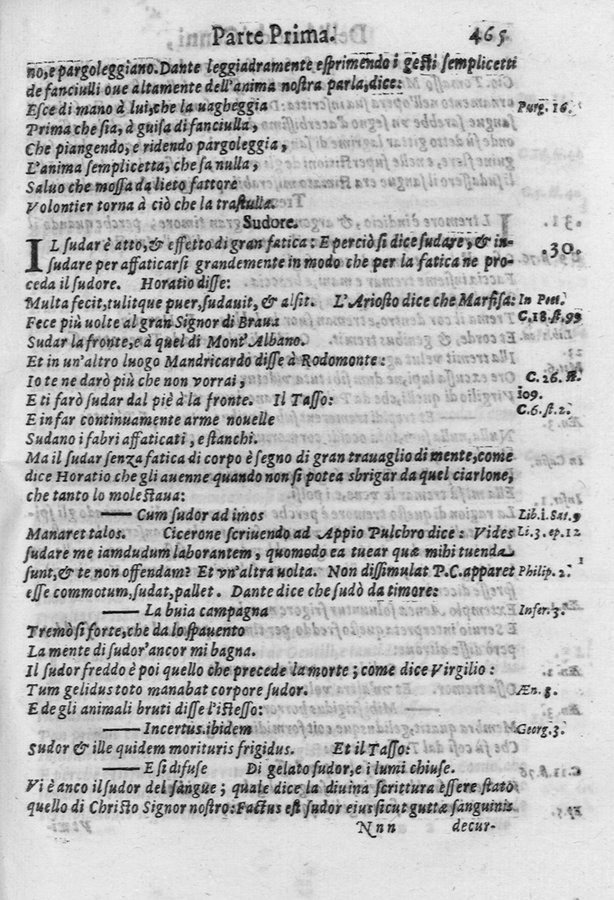 Parte Prima. 465
no, e pargoleggiano. Dante leggiadramente esprimendo i gesti semplicetti
de fanciulli oue altamente dell'anima nostra parla, dice:
Esce di mano à lui, che la uagheggia Purg. 16.
Prima che sia, à guisa di fanciulla,
Che piangendo, e ridendo pargoleggia,
L'anima semplicetta, che sa nulla,
Saluo che mossa da lieto fattore
Volontier torna à ciò che la trastulla.
Sudore.
IL sudar è atto, & effetto di gran fatica: E perciò si dice sudare, & in- 30.
sudare per affaticarsi grandemente in modo che per la fatica ne pro-
ceda il sudore. Horatio disse:
Multa fecit, tulitque puer, sudauit, & alsit. L'Ariosto dice che Marfisa: In Poet.
Fece più volte al gran Signor di Braua C. 18. st. 99
Sudar la fronte, e à quel di Mont'Albano.
Et in un'altro luogo Mandricardo disse à Rodomonte:
Io te ne darò più che non vorrai, C. 26. st.
E ti farò sudar dal piè à la fronte. Il Tasso: 109.
E in far continuamente arme nouelle C. 6. st. 2.
Sudano i fabri affaticati, e stanchi.
Ma il sudar senza fatica di corpo è segno di gran trauaglio di mente, come
dice Horatio che gli auenne quando non si potea sbrigar da quel ciarlone,
che tanto lo molestaua:
—— Cum sudor ad imos Lib. i. Sat. 9
Manaret talos. Cicerone scriuendo ad Appio Pulchro dice: Vides Li. 3. ep. 12
sudare me iamdudum laborantem, quomodo ea tuear quæ mihi tuenda
sunt, & te non offendam? Et vn'altra uolta. Non dissimulat P.C. apparet Philip. 2.
esse commotum, sudat, pallet. Dante dice che sudò da timore:
—— La buia campagna Infer. 3.
Tremò sì forte, che da lo spauento
La mente di sudor'ancor mi bagna.
Il sudor freddo è poi quello che precede la morte; come dice Virgilio:
Tum gelidus toto manabat corpore sudor. Æn. 8.
E de gli animali bruti disse l'istesso:
—— Incertus ibidem Georg. 3.
Sudor & ille quidem morituris frigidus. Et il Tasso:
—— E si difuse Di gelato sudor, e i lumi chiuse.
Vi è anco il sudor del sàngue; quale dice la diuina scrittura essere stato
quello di Christo Signor nostro: Factus est sudor eius sicut guttæ sanguinis
Nnn decur-